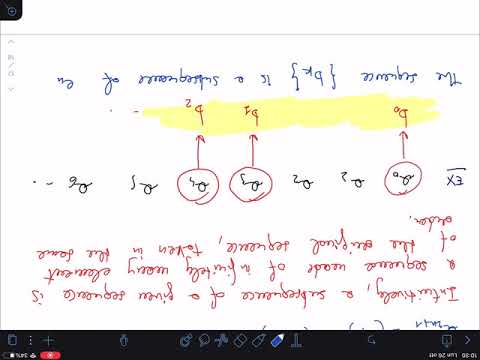 10:50 Lun 26 ott 34%
Intuitively, a subsequence of a given sequence is
a sequence made of infinitely many element
of the original sequence, taken in the same
order.
EX a₀ a₁ a₂ a₃ a₄ a₅ a₆ ...
b₀ b₁ b₂ ...
The sequence {bₖ} is a subsequence of an